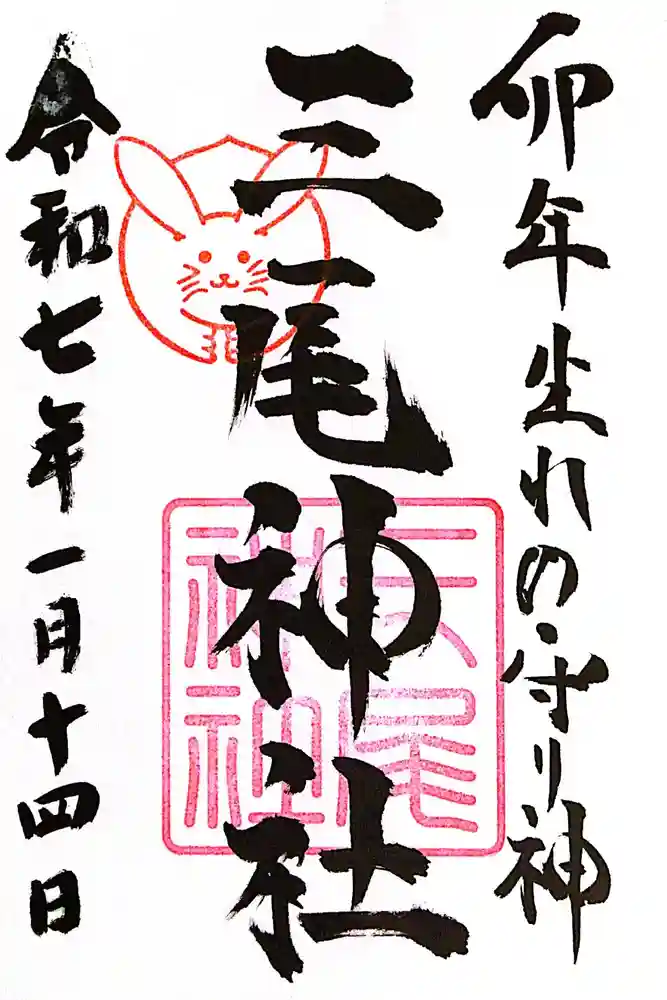 卯年生れの守り神
三尾神社
令和七年一月十四日